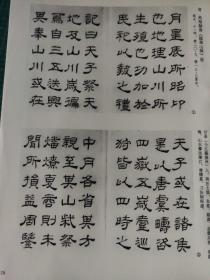 月星辰所昭卬
也地理山川所
生殖也功加於
民祀以報之禮
記曰天子祭天
地及山川歲徧
焉自三五迭興
其奉山川或在
天子或在諸侯
是以唐虞疇咨
四嶽五歲壹巡
狩皆以四時之
中月各省其方
親至其山柴祭
燔燎夏商則未
聞所損益周鑒